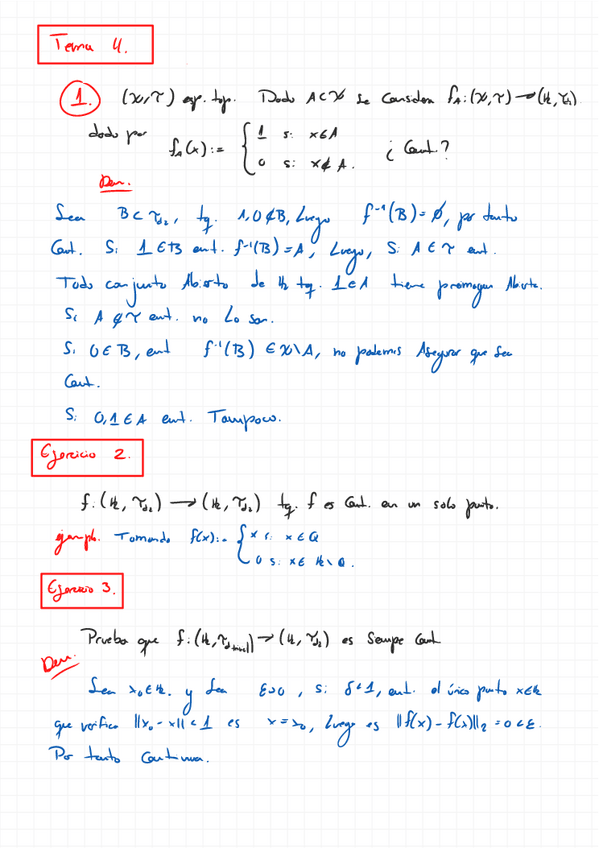 Tema 4.
1. (X,τ) esp. top. Dado A⊂X se considera f_A:(X,τ)→(ℝ,τ_d₂)
dado por f_A(x):= { 1 si x∈A
0 si x∉A. ¿Cont.?
Dem.
Sea B⊂τ_d₂, tq. 1,0∉B, Luego f⁻¹(B)=∅, por tanto
Cont. Si 1∈B ent. f⁻¹(B)=A, Luego, Si A∈τ ent.
Todo conjunto Abierto de ℝ tq. 1∈A tiene preimagen Abierta.
Si A∉τ ent. no Lo son.
Si 0∈B, ent f⁻¹(B)∈X\A, no podemis Asegurar que Sea
Cont.
Si 0,1∈A ent. Tampoco.
Ejercicio 2.
f:(ℝ,τ_d₂)→(ℝ,τ_d₂) tq. f es Cont. en un solo punto.
ejempl. Tomando f(x):= { x si x∈Q
0 si x∈ℝ\Q.
Ejercicio 3.
Prueba que f:(ℝ,τ_d trivial)→(ℝ,τ_d₂) es Sempe Cont
Dem.
Sea x₀∈ℝ. y Sea ε>0, si δ<1, ent. el único punto x∈ℝ
que verifica ||x₀-x||<1 es x=x₀, Luego es ||f(x)-f(x)||₂=0<ε.
Por tanto Continua.